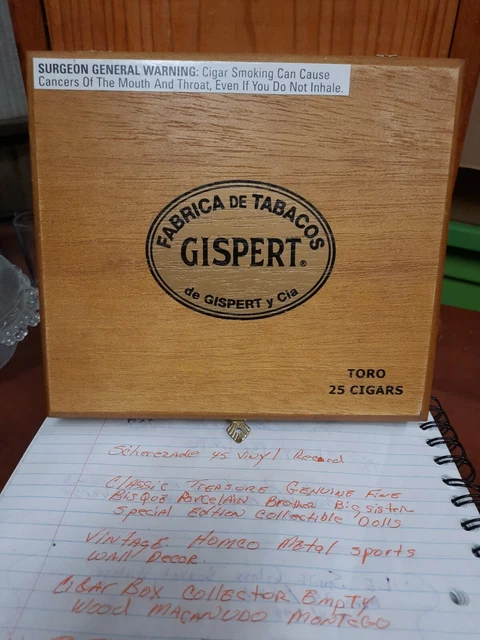 SURGEON GENERAL WARNING: Cigar Smoking Can Cause
Cancers Of The Mouth And Throat, Even If You Do Not Inhale.
FABRICA DE TABACOS
GISPERT®
de GISPERT y Cia
TORO
25 CIGARS
Scherezade 45 Vinyl Record
Classic Treasure Genuine Fine
Bisque Porcelain Brother Big sister
Special Edition Collectible Dolls
Vintage Homco Metal sports
Wall Decor
Cigar Box Collector Empty
Wood Macanudo Montego